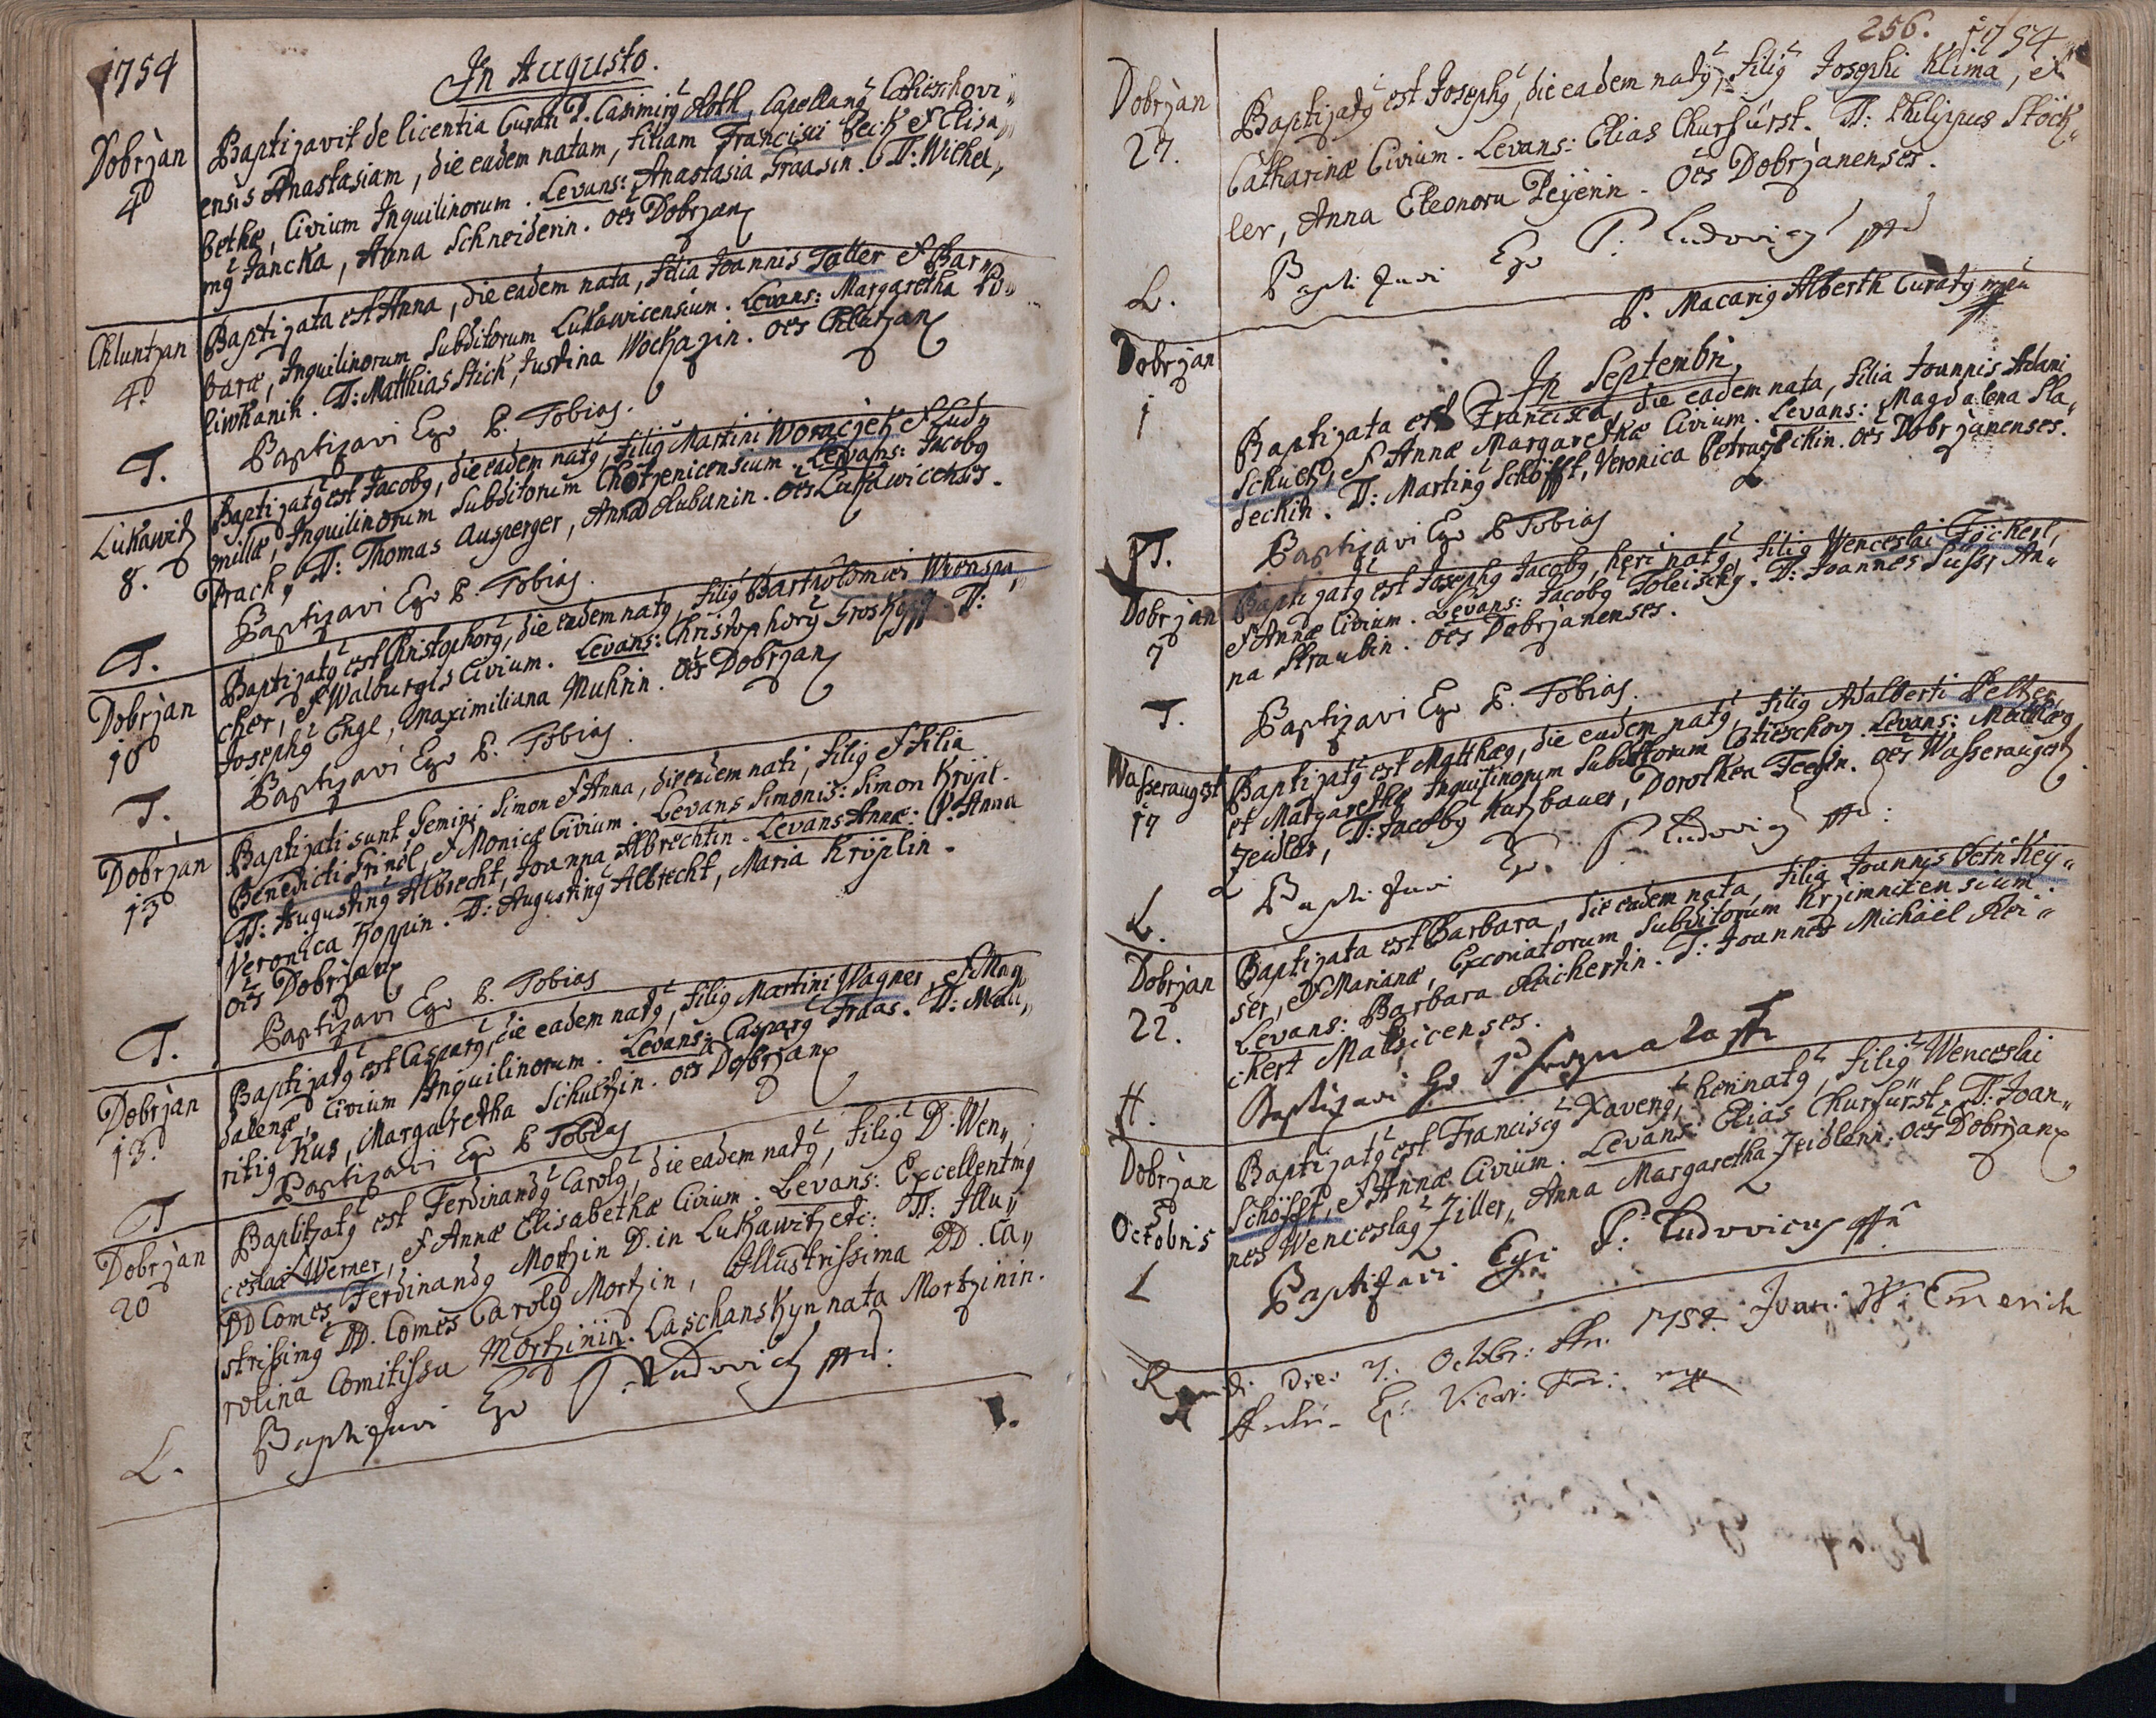 1754
In Augusto.
Dobrzan
4
Baptizavit de licentia Curati P. Casimirꝰ Aoth, Capellanꝰ Cotieschovi„
ensis Anastasiam, die eadem natam, filiam Francisci Beck et Elisa„
bethæ, Civium Inquilinorum. Levans: Anastasia Fraasin. TT: Wichel„
mꝰ Jancka, Anna Schneiderin. oēs Dobrzan
Chluntzan
4.
Baptizata est Anna, die eadem nata, filia Joannis Taller et Bar„
baræ, Inquilinorum Subditorum Lukawicensium. Levans: Margaretha Po„
liwkanik. TT: Matthias Stich, Justina Woczazin. oēs Chlutzan
T.
Baptizavi Ego P. Tobias.
Lukawitz
8.
Baptizatꝰ est Jacobꝰ, die eadem natꝰ, filiꝰ Martini Woraczek et Lud„
millæ, Inquilinorum Subditorum Chotzenicensium. Levans: Jacobꝰ
Prach, TT: Thomas Ausperger, Anna Dubanin. oēs Lukawicenses.
T.
Baptizavi Ego P. Tobias.
Dobrzan
10
Baptizatꝰ est Christophorꝰ, die eadem natꝰ, filiꝰ Bartholomæi Wronspa„
cher, et Walburgis Civium. Levans: Christophorꝰ Groskopf. TT:
Josephꝰ Engl, Maximiliana Muhrin. oēs Dobrzan
T.
Baptizavi Ego P. Tobias.
Dobrzan
13
Baptizati sunt Gemini Simon et Anna, die eadem nati, filiꝰ et filia
Benedicti Frindl, et Monicæ Civium. Levans Simonis: Simon Krözl.
TT: Augustinꝰ Albrecht, Joanna Albrechtin. Levans Annæ: V. Anna
Veronica Koppin. TT: Augustinꝰ Albrecht, Maria Krözlin.
oēs Dobrzan
T.
Baptizavi Ego P. Tobias
Dobrzan
13.
Baptizatꝰ est Casparꝰ, die eadem natꝰ, filiꝰ Martini Wagner, et Mag„
dalenæ, Civium Inquilinorum. Levans: Casparꝰ Fraas. TT: Mau„
ritiꝰ Kus, Margaretha Schultzin. oēs Dobrzan
T
Baptizavi Ego P. Tobias
Dobrzan
20
Baptizatꝰ est Ferdinandꝰ Carolꝰ, die eadem natꝰ, filiꝰ D. Wen„
ceslai Werner, et Annæ Elisabethæ Civium. Levans: Excellentmꝰ
DD Comes Ferdinandꝰ Mortzin D. in Lukawitz etc: TT: Illu„
strissimꝰ DD. Comes Carolꝰ Mortzin, Illustrissima DD. Ca„
rolina Comitissa Mortzinin. Laschanskyn nata Mortzinin.
L.
Baptizavi Ego P. Ludovicꝰ mp:
256. 1754
Dobrzan
27.
Baptizatꝰ est Josephꝰ, die eadem natꝰ, filiꝰ Josephi Klima, et
Catharinæ Civium. Levans: Elias Churfürst. TT: Philippus Stöck„
ler, Anna Eleonora Peyerin. Oēs Dobrzanenses.
L.
Baptizavi Ego P. Ludovicꝰ mp
P. Macariꝰ Alberth Curatꝰ mp
In Septembri,
Dobrzan
1
Baptizata est Francisca, die eadem nata, filia Joannis Adami
Schuch, et Annæ Margarethæ Civium. Levans: Magdalena Sla„
deckin. TT: Martinꝰ Schöfft, Veronica Petraschkin. oēs Dobrzanenses.
T.
Baptizavi Ego P. Tobias
Dobrzan
7
Baptizatꝰ est Josephꝰ Jacobꝰ, heri natꝰ, filiꝰ Wenceslai Föckerl,
et Annæ Civium. Levans: Jacobꝰ Toleischꝰ. TT: Joannes Süss, An„
na Straubin. oēs Dobrzanenses.
T.
Baptizavi Ego P. Tobias.
Wasseraugest
17
Baptizatꝰ est Matthæꝰ, die eadem natꝰ, filiꝰ Adalberti Peltzer,
et Margarethæ Inquilinorum Subditorum Cotieschov. Levans: Matthæꝰ
Zeidler, TT: Jacobꝰ Kutzbauer, Dorothea Feeyin. oēs Wasseraugest
L.
Baptizavi Ego P. Ludovicꝰ mp:
Dobrzan
22.
Baptizata est Barbara, die eadem nata, filiꝰ Joannis Petri Key„
ser, et Marianæ, Excoriatorum Subditorum Krzimnicensium.
Levans: Barbara Reichertin. T: Joannes Michael Rei„
chert Malsicenses.
H.
Baptizavi Ego P.
Dobrzan
5
Octobris
Baptizatꝰ est Franciscꝰ Xaverꝰ, heri natꝰ, filiꝰ Wenceslai
Schöfft, et Annæ Civium. Levans: Elias Churfürst. TT: Joan„
nes Wenceslaꝰ Ziller, Anna Margaretha Zeidlerin. oēs Dobrzan
L
Baptizavi Ego P: Ludovicus mp
die 7. Octobr: 1754. Joan: W: Emerich
Vicar: For: mp